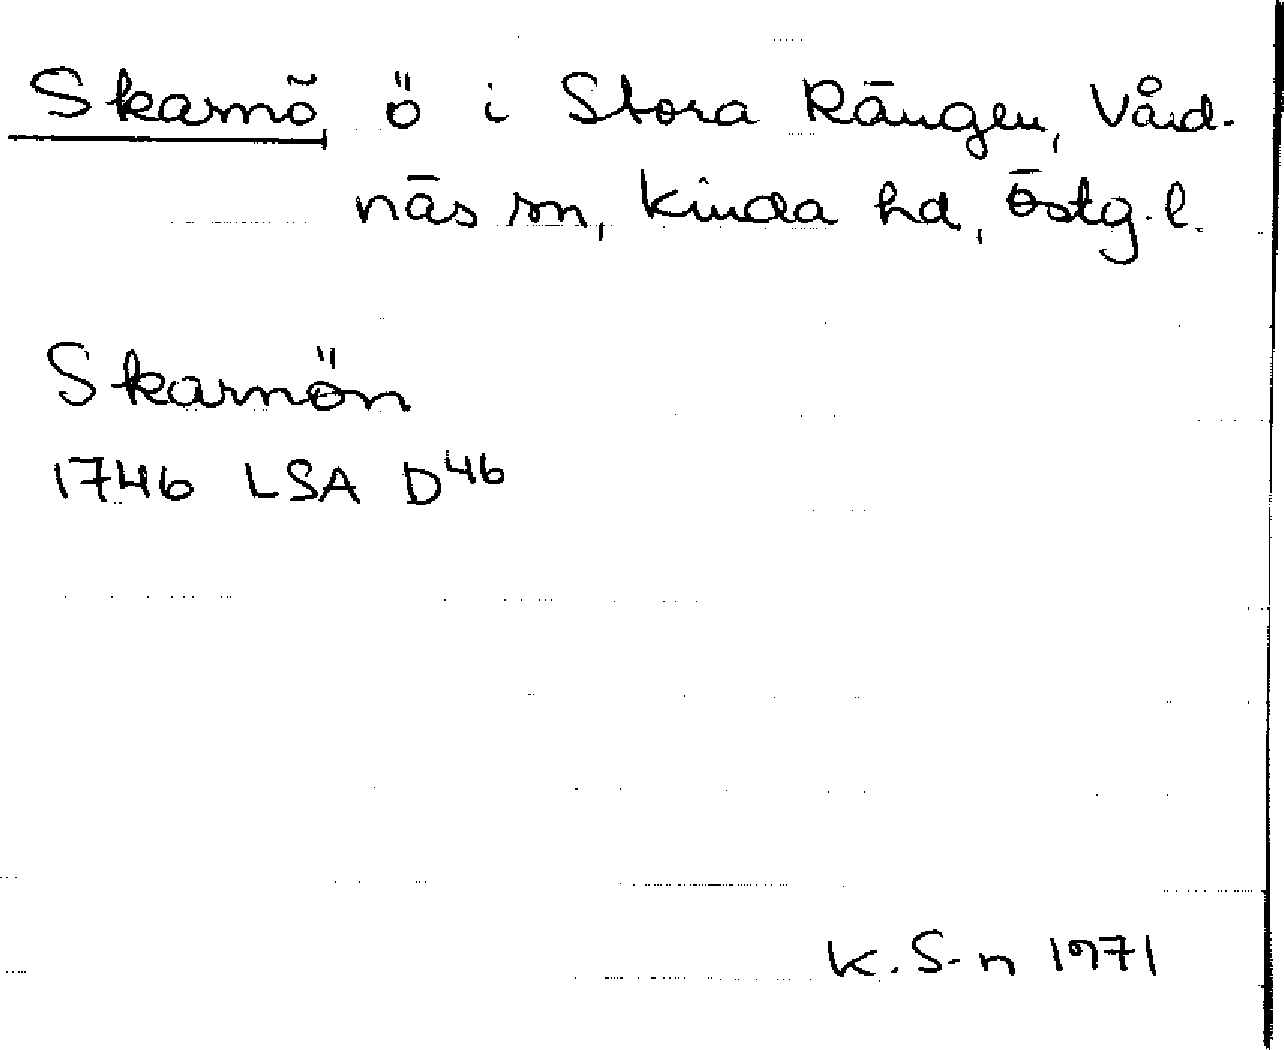 Skarnö ö i Stora Rängen, Vård-
näs sn, Kinda hd, Östg.l.
Skarnön
1746 LSA D46
K. S-n 1971